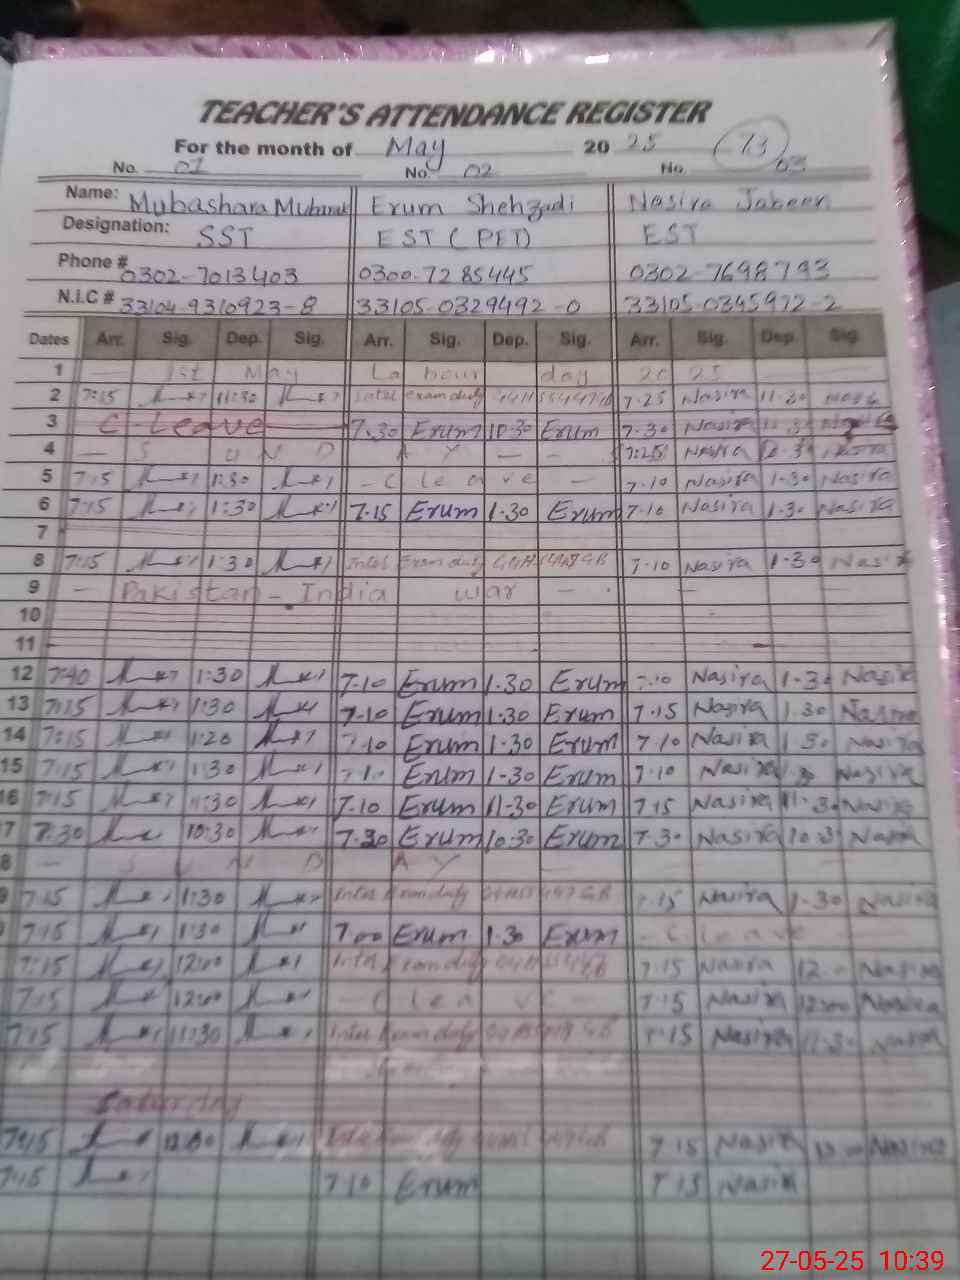 TEACHER'S ATTENDANCE REGISTER
For the month of May 20 25 13
No. 01 No. 02 No. 03
Name: Mubashara Mubarak Erum Shehzadi Nasira Jabeen
Designation: SST EST (PET) EST
Phone # 0302-7013403 0300-7285445 0302-7698793
N.I.C # 33104-9310923-8 33105-0329492-0 33105-0345972-2
Dates Arr. Sig. Dep. Sig. Arr. Sig. Dep. Sig. Arr. Sig. Dep. Sig.
1 — 1st May La bour day 20 25 —
2 7:15 11:30 exam duty 7-25 Nasira 11-30
3 C-Leave 7.30 Erum 10-30 Erum 7-30 Nasira
4 — S U N D A Y — — 7:25 Nasira
5 7:15 1:30 - C leave — 7-10 Nasira 1-30 Nasira
6 7:15 1:30 7-15 Erum 1-30 Erum 7-10 Nasira 1-30 Nasira
7
8 7:15 1:30 Inter Exam duty 7-10 Nasira 1-30 Nasira
9 — Pakistan - India war — —
10
11
12 7:40 1:30 7-10 Erum 1-30 Erum 7-10 Nasira 1-30 Nasira
13 7:15 1:30 7-10 Erum 1-30 Erum 7-15 Nasira 1-30 Nasira
14 7:15 1:20 7-10 Erum 1-30 Erum 7-10 Nasira 1-30 Nasira
15 7:15 1:30 7-10 Erum 1-30 Erum 7-10 Nasira Nasira
16 7:15 11:30 7-10 Erum 11-30 Erum 7-15 Nasira 11-30 Nasira
7 7:30 10:30 7.30 Erum 10.30 Erum 7-30 Nasira 10-30 Nasira
8 — S U N D A Y —
9 7:15 1:30 Inter Exam duty 7-15 Nasira 1-30 Nasira
7:15 1:30 7.00 Erum 1.30 Erum - C leave
7:15 12:00 Inter Exam duty 7-15 Nasira 12-00 Nasira
7:15 12:00 - C leave - 7-15 Nasira 12:00 Nasira
7:15 11:30 Inter Exam duty 7-15 Nasira 11-30 Nasira
Saturday
7:15 7-15 Nasira Nasira
7:15 7-10 Erum 7-15 Nasira
27-05-25 10:39